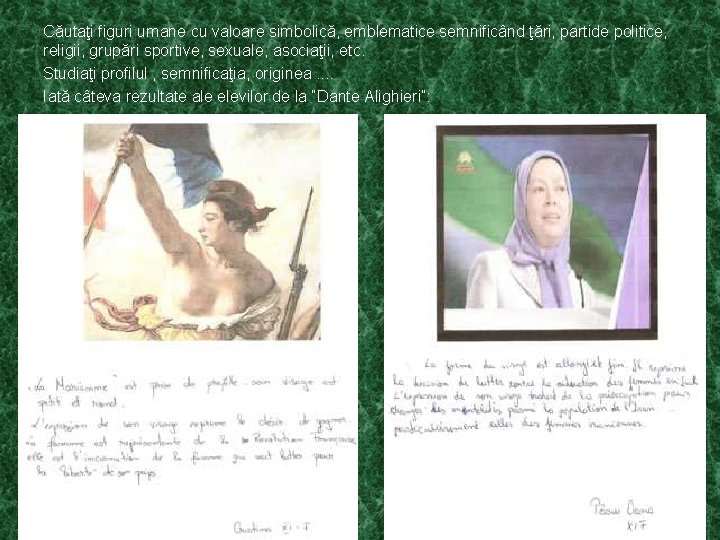 Căutaţi figuri umane cu valoare simbolică, emblematice semnificând ţări, partide politice,
religii, grupări sportive, sexuale, asociaţii, etc.
Studiaţi profilul , semnificaţia, originea ....
Iată câteva rezultate ale elevilor de la “Dante Alighieri”:
"La Marianne" est prise de profile. son visage est
petit et rond.
L'expression de son visage exprime le désir de gagner.
La femme est représentante de la Revolution française
elle est l'incarnation de la femme qui veut lutter pour
la liberté de son pays.
XI - F
La forme du visage est allongée et fine. Il exprime
la décision de lutter contre la situation des femmes
L'expression de son visage traduit de la préoccupation pour
changer des mentalités parmi la population de l'Iran
particulièrement celles des femmes iraniennes.
XI F